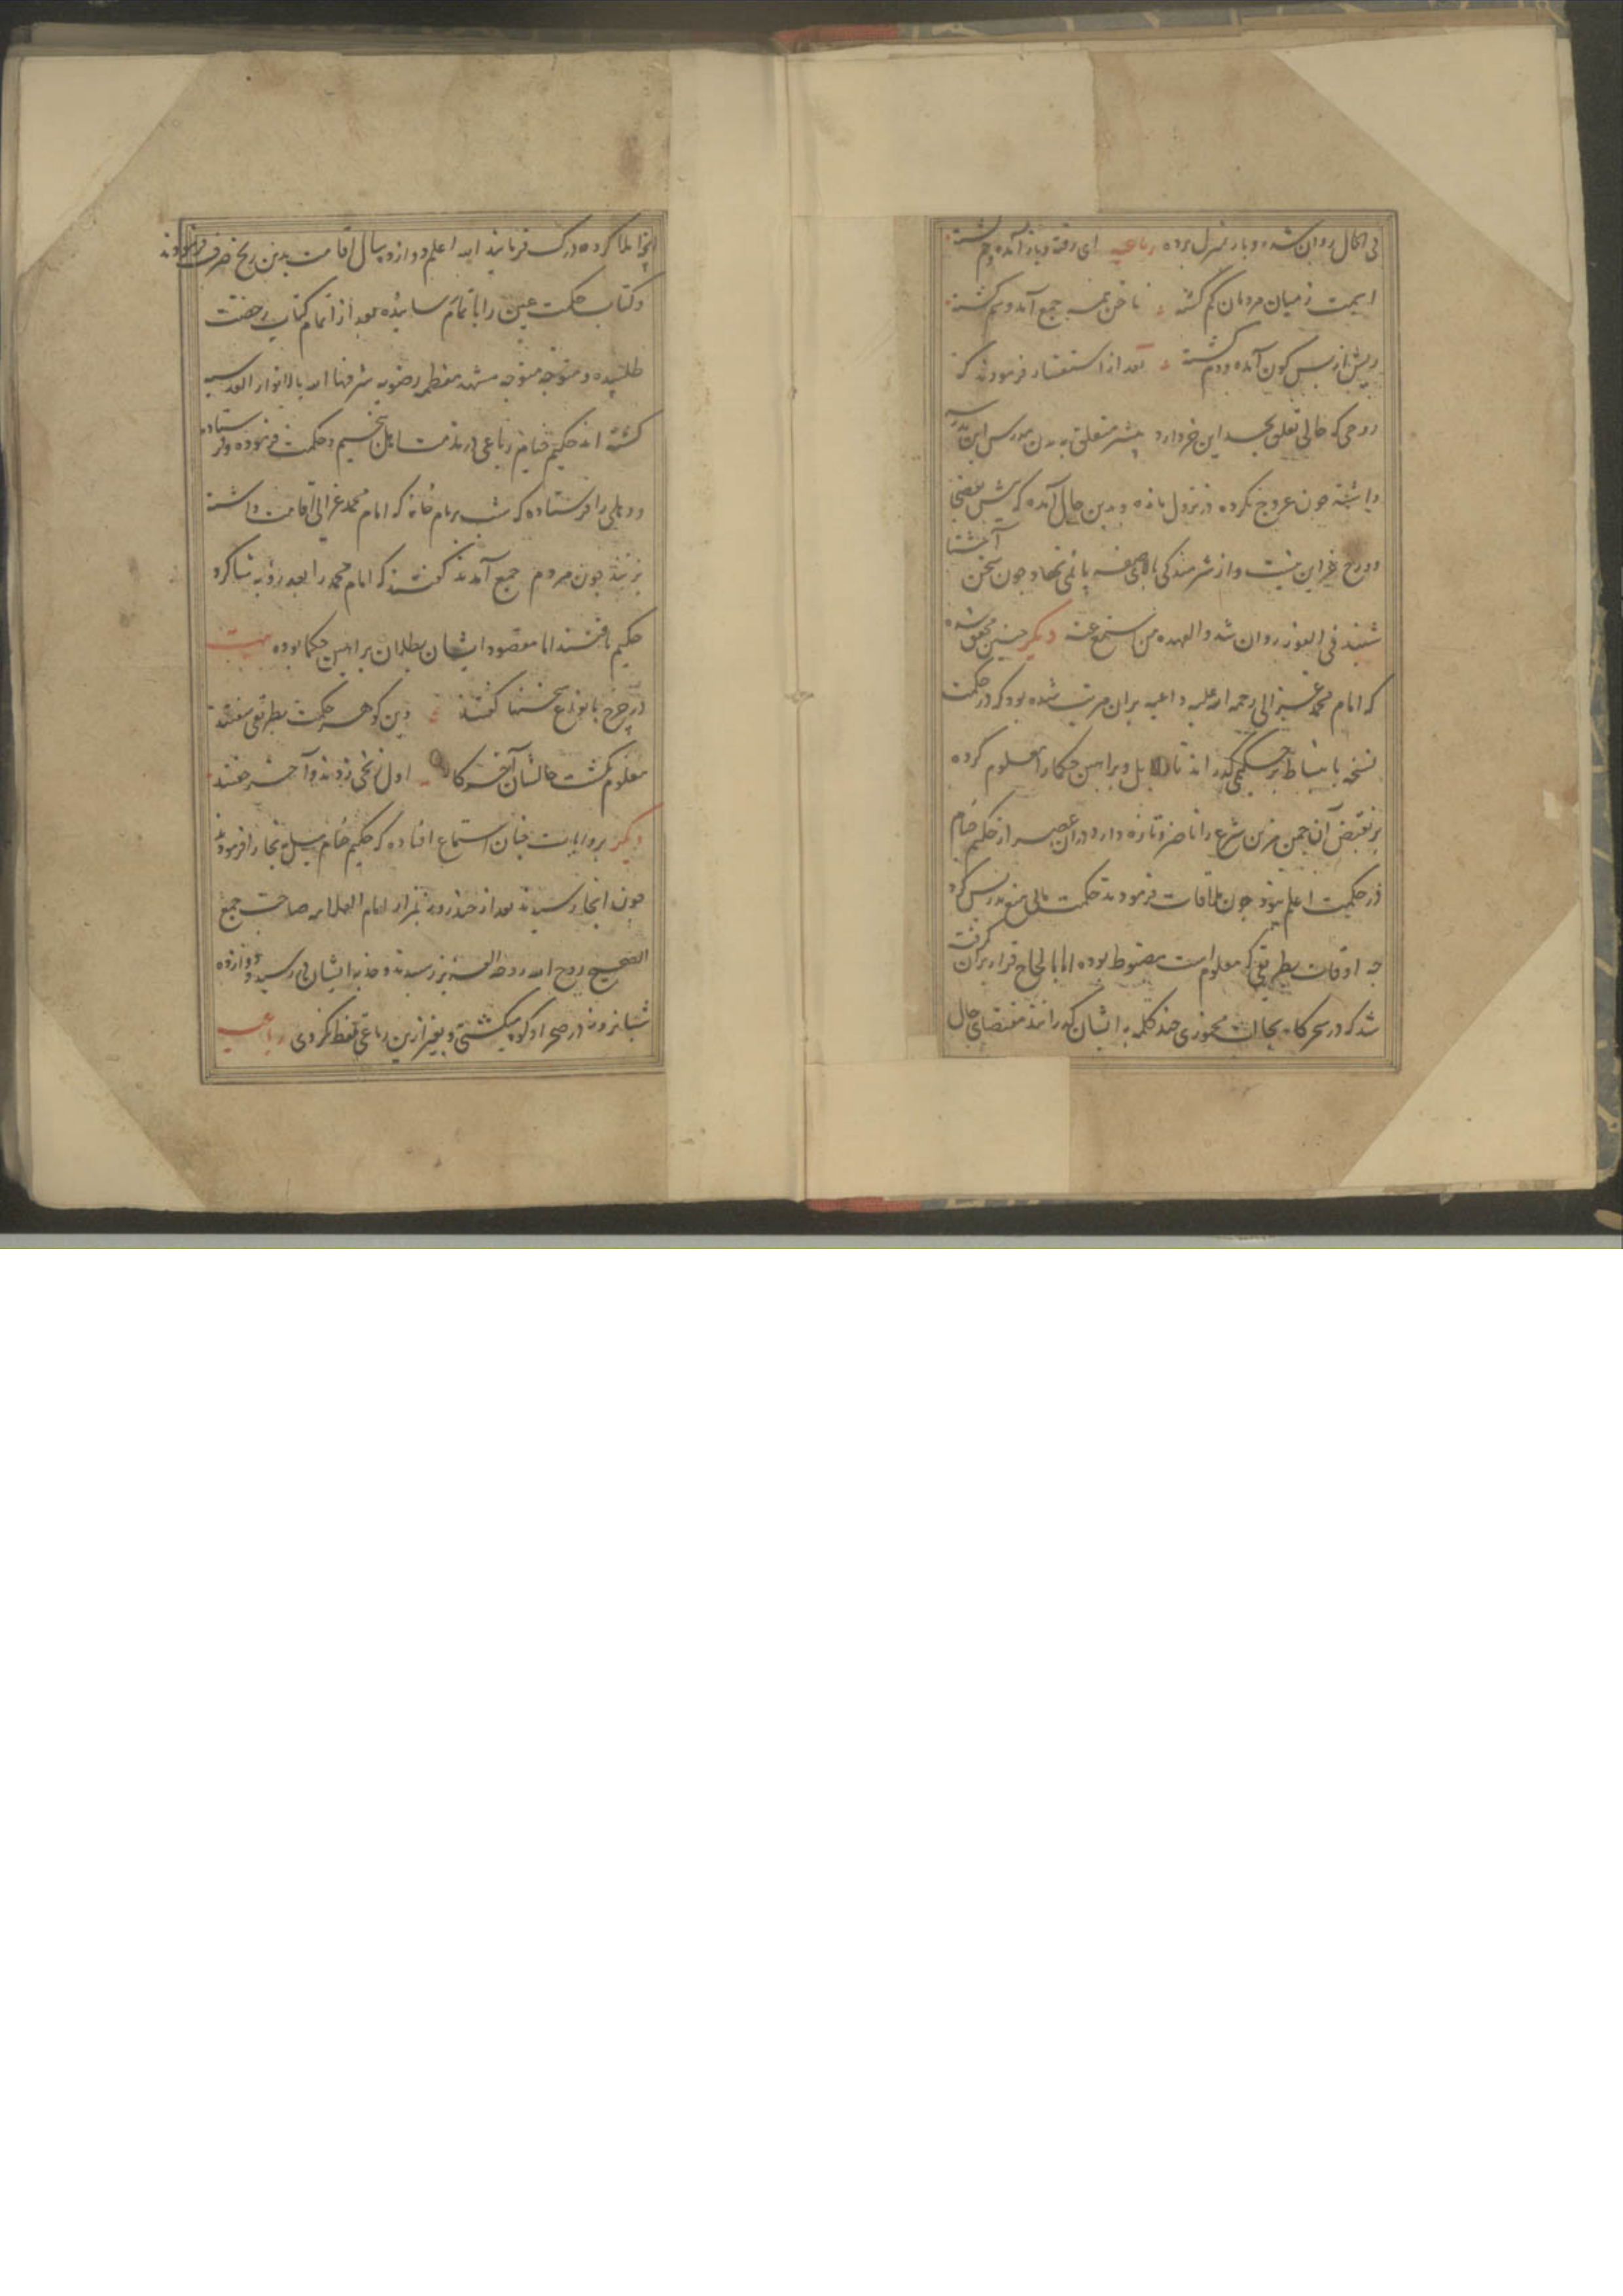 فی الحال روان شده و بار بمنزل برده رباعیه ای رفته و باز آمده و خم گشته
ایمت ز میان مردمان گم گشته ناخن همه جمع آمده و سم گشته
ریش از پس کون آمده و دم گشته بعد از استفسار فرمودند که
روحی که حالی تعلق بجسد این خر دارد پیشتر متعلق به بدن مدرس این مدرسه
داشته چون عروج نکرده در نزول مانده و بدین حال آمده که شش
دوزخ غیر این نیست و از شرمندگی پای نهاد و چون سخن آشنا
شنید فی الفور روان شد والعهده من استمع عنه دیگر چنین محقق شده
که امام محمد غزالی رحمه الله علیه داعیه بران مرتب شده بود که در حکمت
نسخه بانبساط بر حکیمی گذراند تا دلایل و براهین حکما را معلوم کرده
بر نقیض آن چمن مزین شرع را ناضر و تازه دارد در آن عصر از حکیم خیام
در حکمیت اعلم نبود چون ملاقات فرمودند حکمت
چه اوقات بطریقی که معلوم است مضبوط بوده اما بالحاح قرار بران گرفت
شد که در سحرگاه بحالت مخموری چند کلمه به ایشان گذرانند مقتضای حال
آنچا املا کرده درک فرمایند الله اعلم دوازده سال اقامت بدین نهج صرف فرمودند
و کتاب حکمت عین را باتمام رسانیده بعد از اتمام کتاب رخصت
طلبیده و متوجه مشهد معظمه رضویه شرفها الله بالانوار القدسیه
گشته اند حکیم خیام رباعی در مذمت و حکمت فرموده و فرستاده
و دهلی را فرستاده که شب بر بام خانه که امام محمد غزالی اقامت داشته
بزنند چون مردم جمع آمدند گفتند که امام محمد را بعد زو به شاگرد
حکیم یافتند اما مقصود ایشان بطلان براهین حکما بوده بیت
در چرخ بانواع سخنها گفتند وین گوهر حکمت بطریقی سفتند
معلوم نگشت حالشان آخر کار اول زنخی زدند و آخر خفتند
دیگر بروایات چنان استماع افتاده که حکیم خیام میل بخارا فرمودند
چون آنجا رسیدند بعد از چند روز بمزار امام العلامه صاحب جمع
الصحیح روح الله روحه العزیز رسیدند و جذبه ایشان را رسید دوازده
شبانروز در صحرا و کوه میگشتی و بغیر ازین رباعی تلفظ نکردی رباعیه